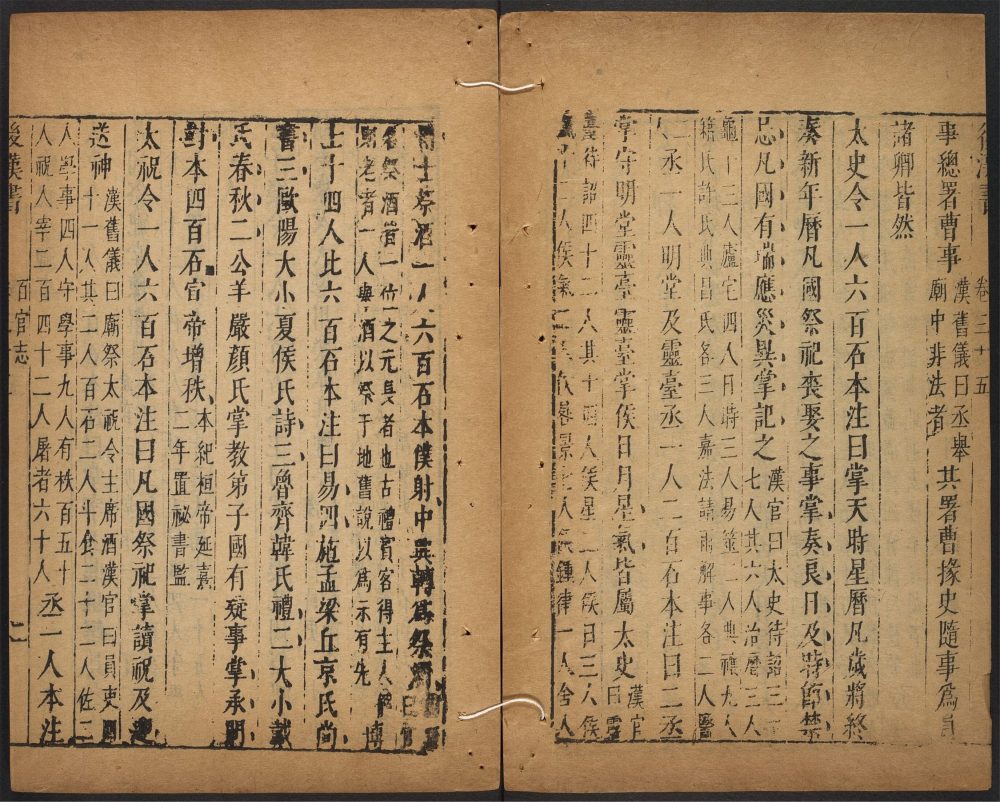 後漢書 卷三十五
事總署曹事漢舊儀曰丞舉廟中非法者其署曹掾史隨事爲員
諸卿皆然
太史令一人六百石本注曰掌天時星曆凡歲將終
奏新年曆凡國祭祀喪娶之事掌奏良日及時節禁
忌凡國有瑞應災異掌記之漢官曰太史待詔三十七人其六人治曆三人
龜卜三人廬宅四人日時三人易筮二人典禳九人籍氏許氏典昌氏各三人嘉法請雨解事各二人醫
一人丞一人明堂及靈臺丞一人二百石本注曰二丞
掌守明堂靈臺靈臺掌候日月星氣皆屬太史漢官曰靈
臺待詔四十二人其十四人候星二人候日三人候風十二人候氣三人候晷景七人候鍾律一人舍人
博士祭酒一人六百石本僕射中興轉爲祭酒
名祭酒皆一位之元長者也古禮賓客得主人饌則老者一人舉酒以祭于地舊說以爲示有先 博
士十四人比六百石本注曰易四施孟梁丘京氏尚
書三歐陽大小夏侯氏詩三魯齊韓氏禮二大小戴
氏春秋二公羊嚴顔氏掌教弟子國有疑事掌承問
對本四百石宣帝增秩本紀桓帝延嘉二年置祕書監
太祝令一人六百石本注曰凡國祭祀掌讀祝及迎
送神漢舊儀曰廟祭太祝令主席酒漢官曰員吏四十一人其二人百石二人斗食二十二人佐二
人學事四人守學事九人有秩百五十人祝人宰二百四十二人屠者六十人丞一人本注
後漢書 百官志 二